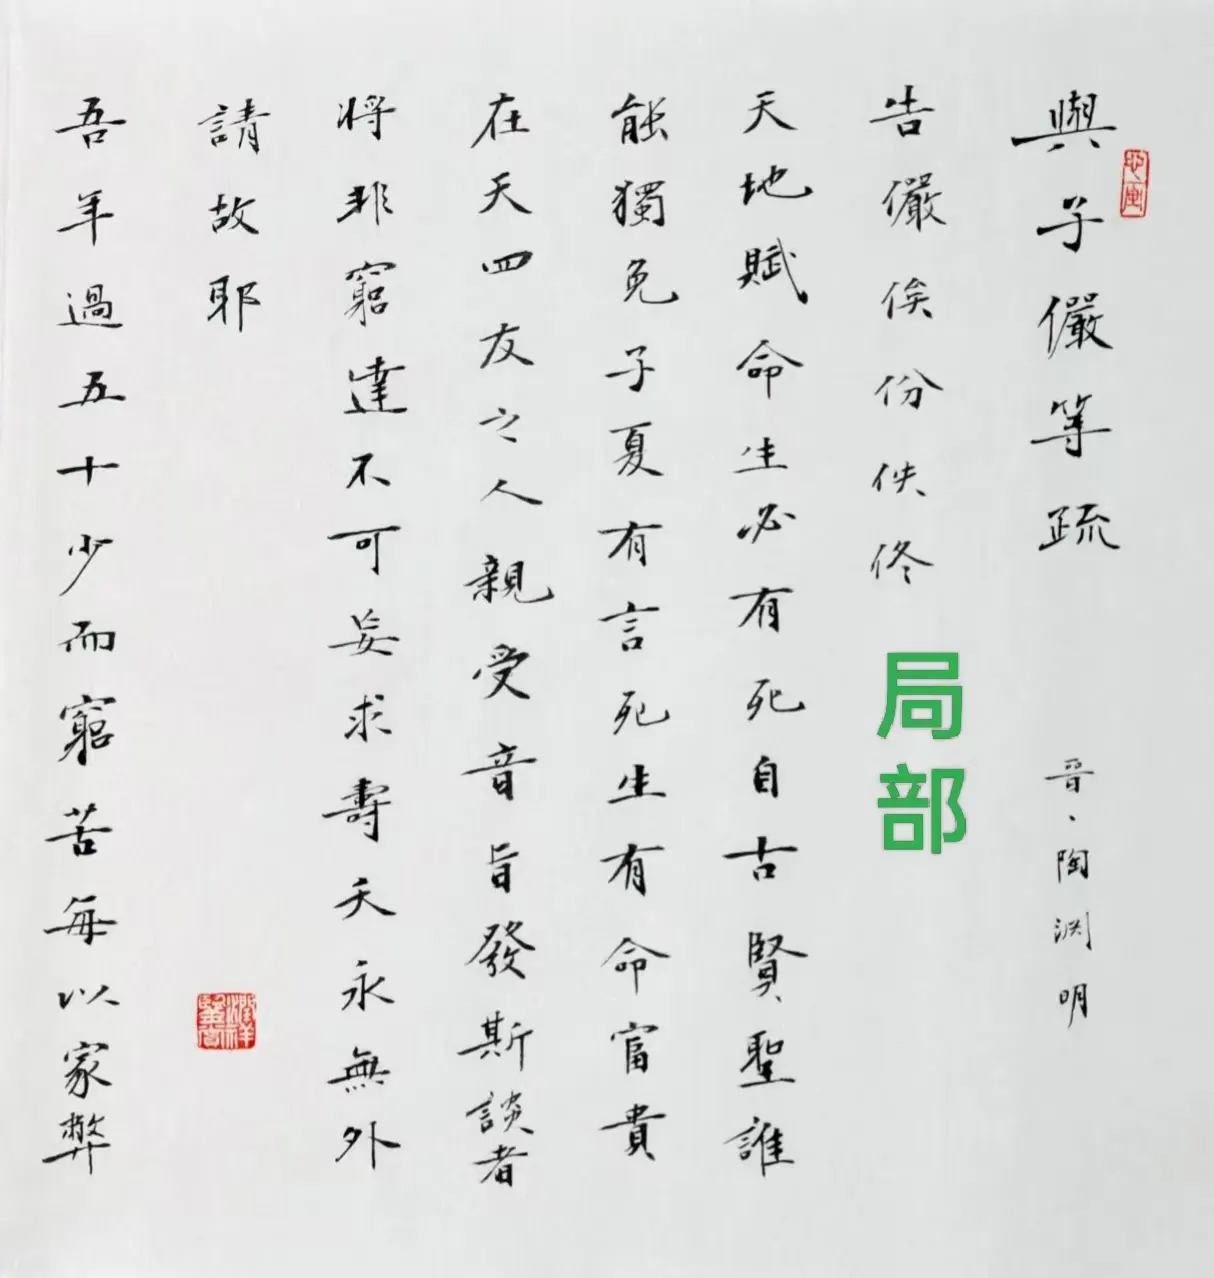 與子儼等疏
晉、陶淵明
告儼俟份佚佟
局部
天地賦命生必有死自古賢聖誰
能獨免子夏有言死生有命富貴
在天四友之人親受音旨發斯談者
將非窮達不可妄求壽夭永無外
請故耶
吾年過五十少而窮苦每以家弊